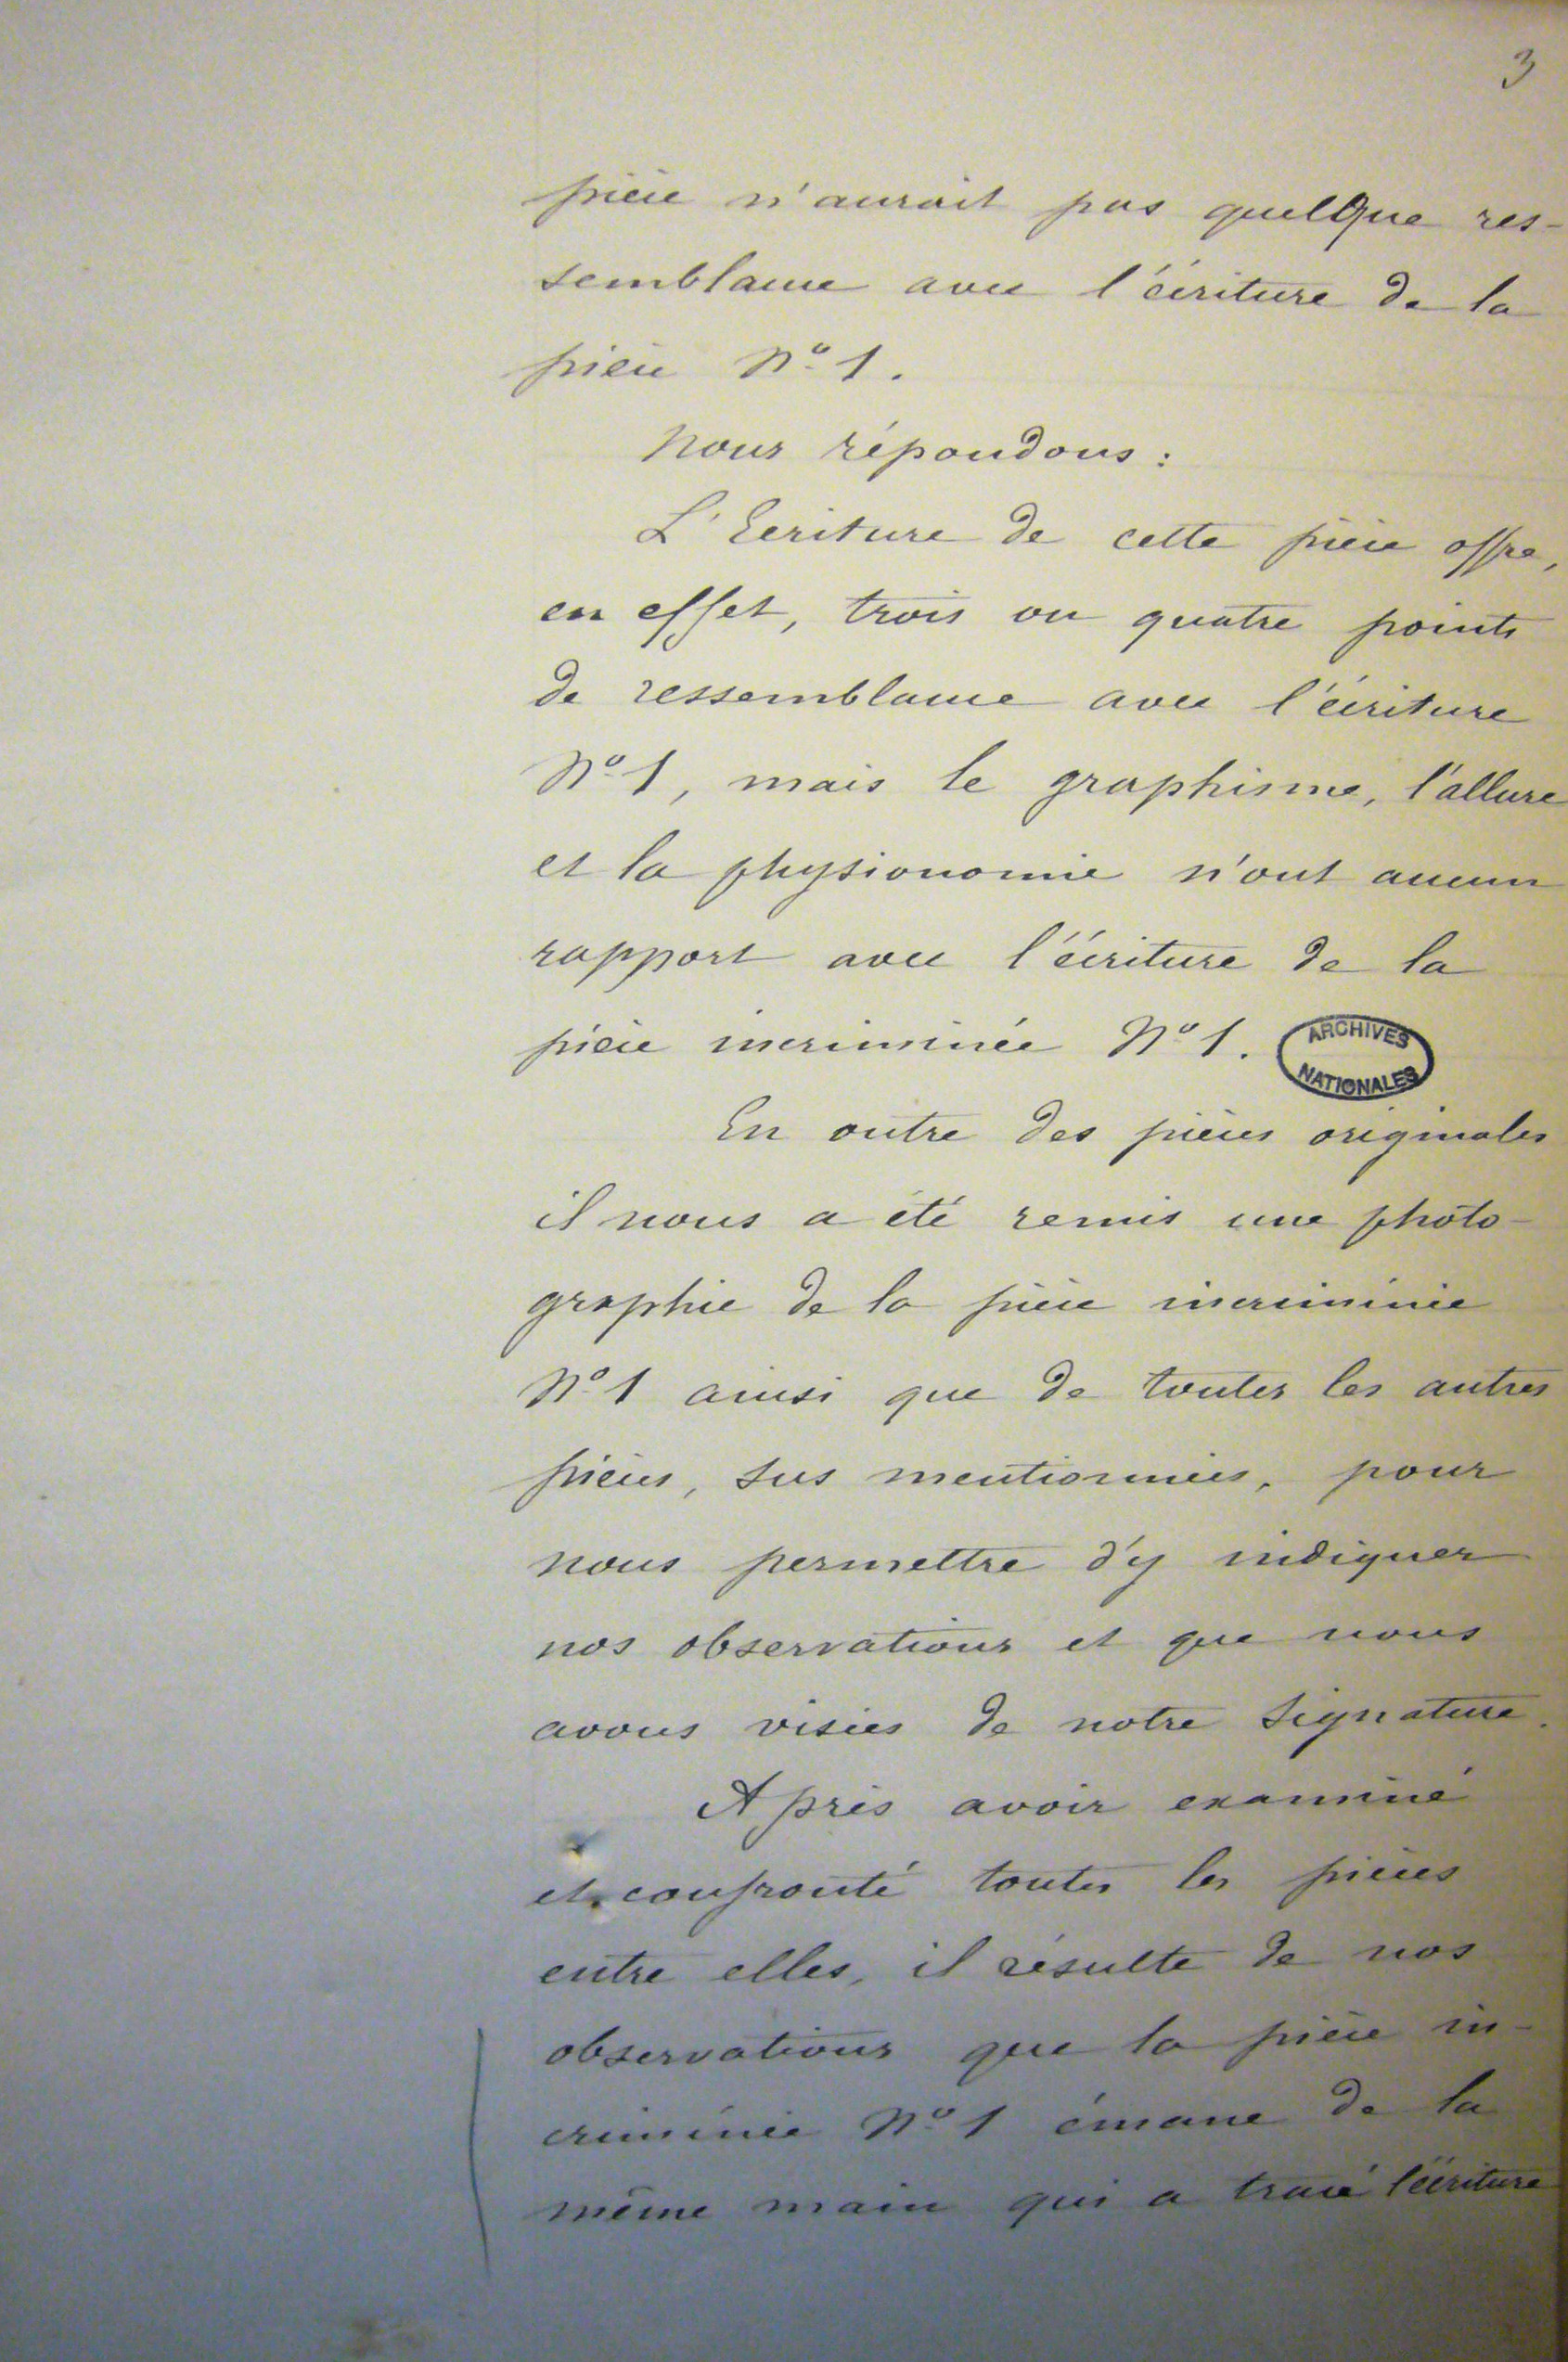 3
pièce n'aurait pas quelque res-
semblance avec l'écriture de la
pièce No 1.
Nous répondons :
L'Ecriture de cette pièce offre,
en effet, trois ou quatre points
de ressemblance avec l'écriture
No 1, mais le graphisme, l'allure
et la physionomie n'ont aucun
rapport avec l'écriture de la
pièce incriminée No 1.
ARCHIVES
NATIONALES
En outre des pièces originales
il nous a été remis une photo-
graphie de la pièce incriminée
No 1 ainsi que de toutes les autres
pièces, sus mentionnées, pour
nous permettre d'y indiquer
nos observations et que nous
avons visées de notre signature.
Après avoir examiné
et confronté toutes les pièces
entre elles, il résulte de nos
observations que la pièce in-
criminée No 1 émane de la
même main qui a tracé l'écriture